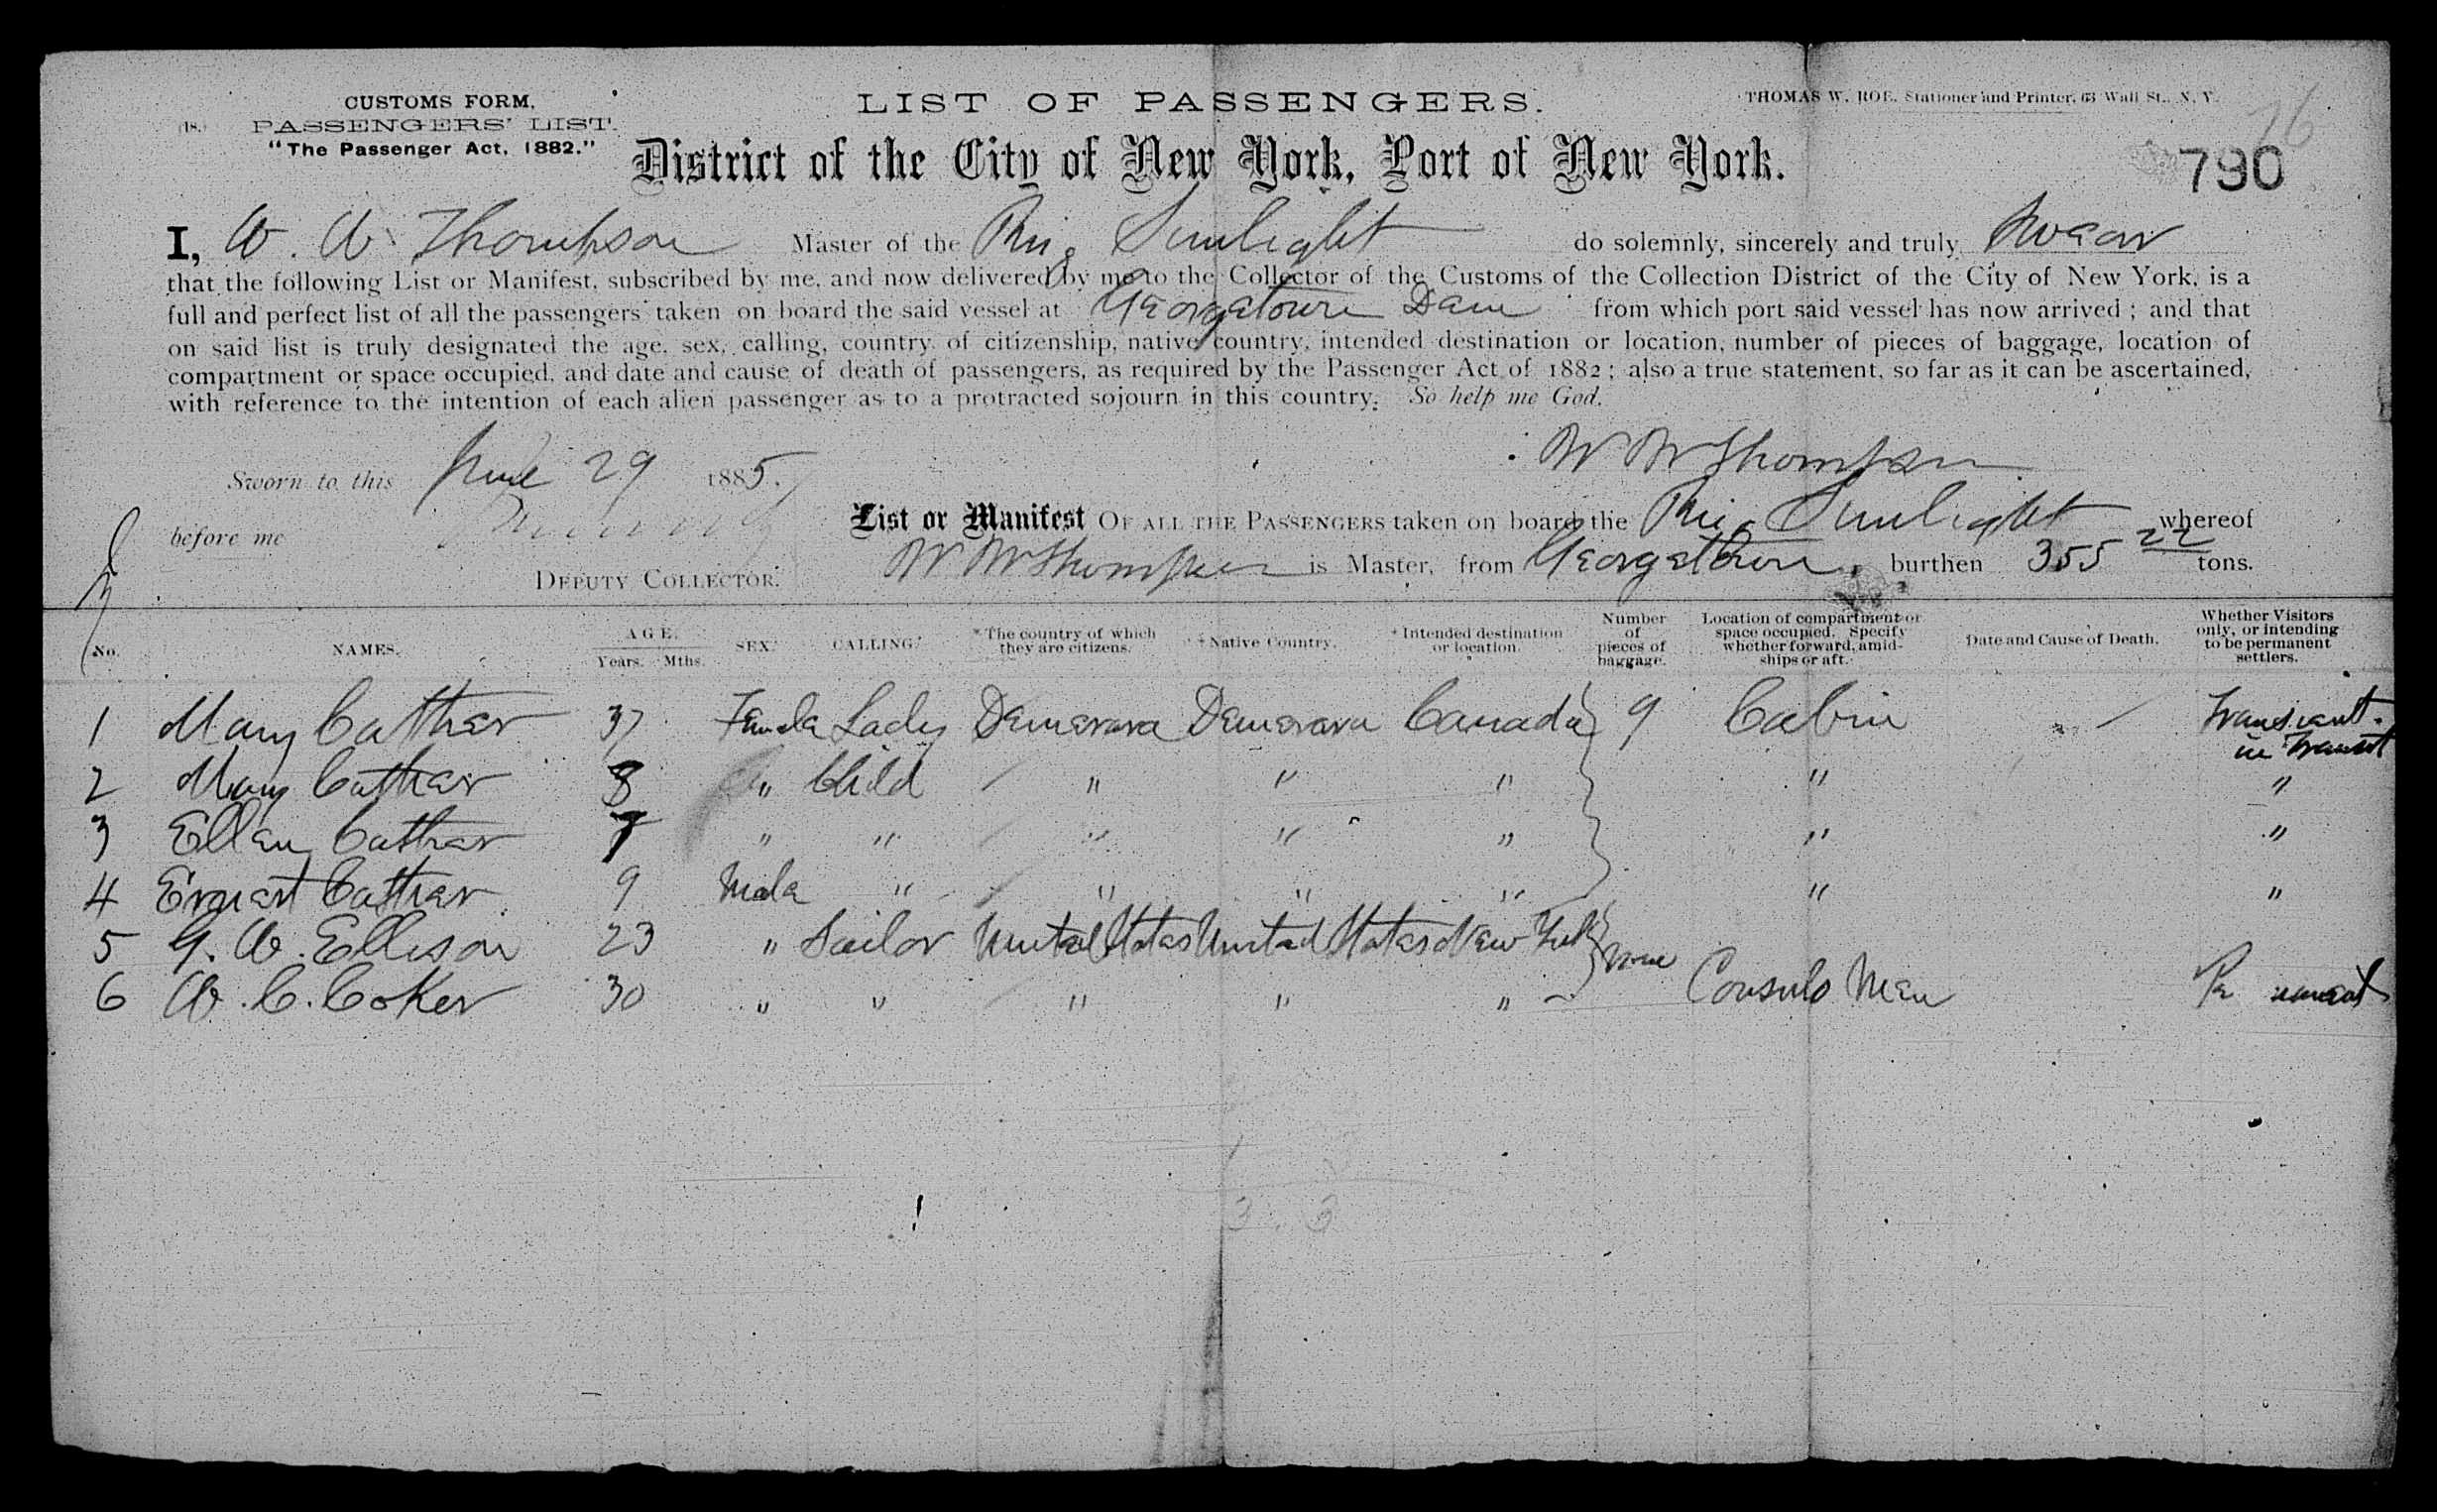 CUSTOMS FORM,
(18.) PASSENGERS' LIST.
"The Passenger Act, 1882."
LIST OF PASSENGERS.
THOMAS W. ROE, Stationer and Printer, 63 Wall St., N. Y.
76
District of the City of New York, Port of New York.
790
I, W. W. Thompson Master of the Brig Sunlight do solemnly, sincerely and truly Swear
that the following List or Manifest, subscribed by me, and now delivered by me to the Collector of the Customs of the Collection District of the City of New York, is a
full and perfect list of all the passengers taken on board the said vessel at Georgetown Dem from which port said vessel has now arrived ; and that
on said list is truly designated the age, sex, calling, country of citizenship, native country, intended destination or location, number of pieces of baggage, location of
compartment or space occupied, and date and cause of death of passengers, as required by the Passenger Act of 1882 ; also a true statement, so far as it can be ascertained,
with reference to the intention of each alien passenger as to a protracted sojourn in this country. So help me God.
W W Thompson
Sworn to this June 29 1885.
before me
DEPUTY COLLECTOR.
List or Manifest OF ALL THE PASSENGERS taken on board the Brig Sunlight whereof
W W Thompson is Master, from Georgetown, burthen 355 22 tons.
No. NAMES. AGE. Years. Mths. SEX. CALLING. *The country of which they are citizens. Native Country. Intended destination or location. Number of pieces of baggage. Location of compartment or space occupied. Specify whether forward, amidships or aft. Date and Cause of Death. Whether Visitors only, or intending to be permanent settlers.
1 Mary Cather 37 Female Lady Demerara Demerara Canada 9 Cabin Transient in Transit
2 Mary Cather 8 " Child " " " " "
3 Ellen Cather 7 " " " " " " "
4 Ernest Cather 9 Male " " " " " "
5 G. W. Ellison 23 " Sailor United States United States New York None
6 W. C. Coker 30 " " " " " Consuls Men Permanent
3.3